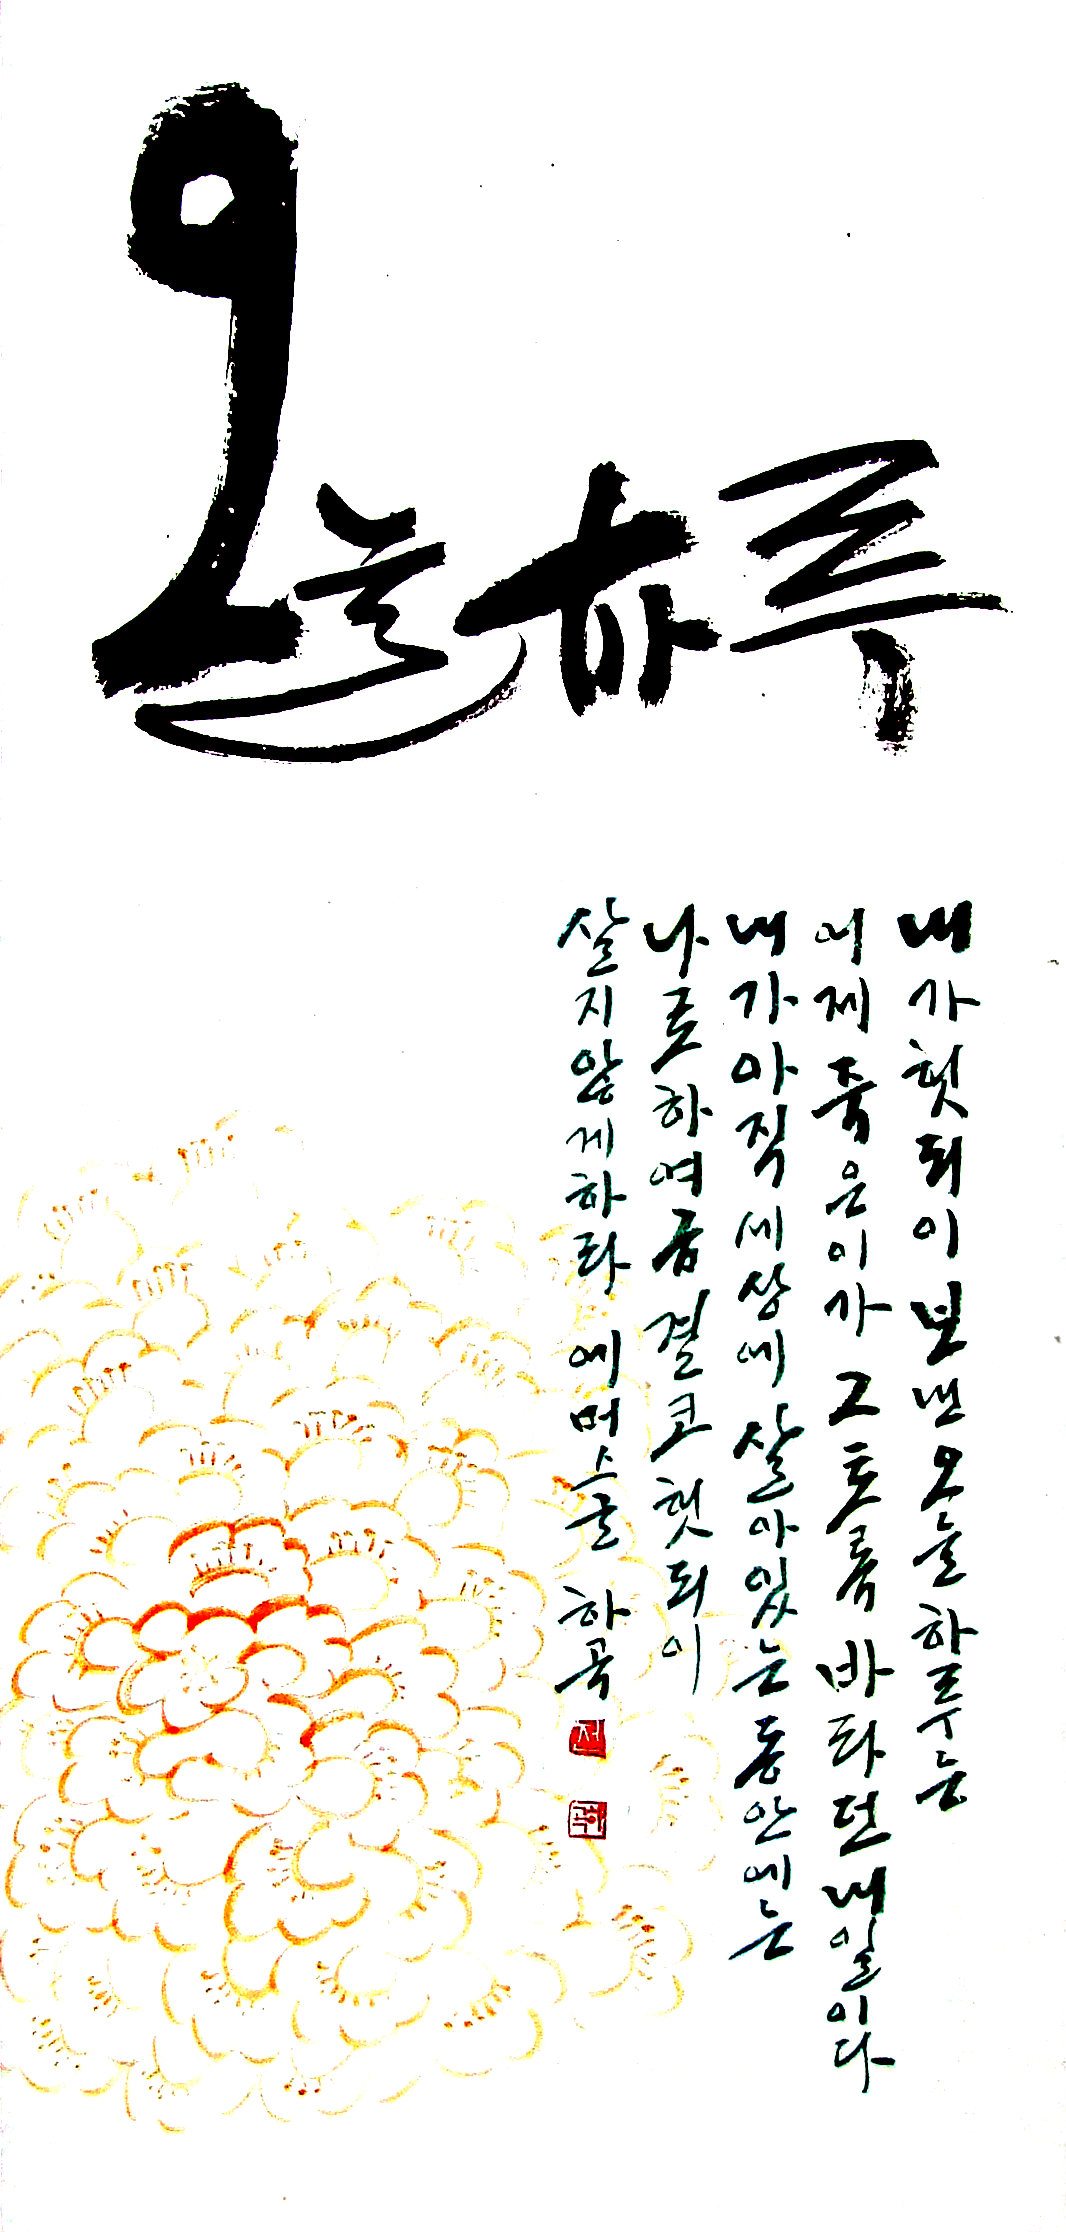 오늘하루
내가헛되이보낸오늘하루는
어제죽은이가그토록바라던내일이다
내가아직세상에살아있는동안에는
나로하여금결코헛되이
살지않게하라 에머슨글 하곡